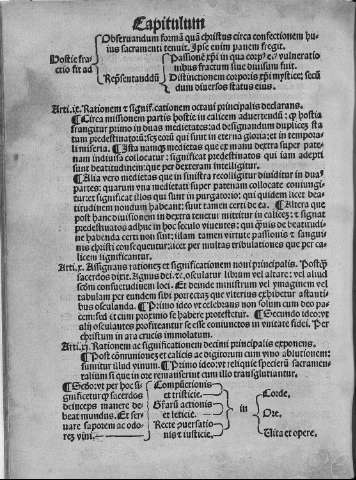 Capitulum
Obseruandum formã quã christus circa confectionem hu
ius sacramenti tenuit. Ipse enim panem fregit.
Hostie fra
ctio fit ad
Passionē xp̄i in qua corpꝰ eꝰ vulneratio
nibus fractum siue diuisum fuit.
Rep̄sentandũ
Distinctionem corporis xp̄i mystice; secũ
dum diuersos status eius.
Arti.ix. Rationem ⁊ significationem octaui principalis declarans.
¶ Circa missionem partis hostie in calicem aduertendũ: qꝫ hostia
frangitur primo in duas medietates: ad designandum duplicẽ sta
tum predestinatorũ: scꝫ eorũ qui sunt in eterna gloria: et in tempora
li miseria. ¶ Ista namqꝫ medietas que ex manu dextra super pate
nam indiuisa collocatur: significat predestinatos qui iam adepti
sunt beatitudinem: que per dexteram intelligitur.
¶ Alia vero medietas que in sinistra recolligitur diuiditur in duas
partes: quarum vna medietati super patenam collocate coniungi
tur: et significat illos qui sunt in purgatorio: qui quidem licet bea
titudinem nondum habeant: sunt tamen certi de ea. ¶ Altera que
post hanc diuisionem in dextera tenetur mittitur in calicẽ: ⁊ signat
predestinatos adhuc in hoc seculo viuentes: qui quis de beatitudi
ne habenda certi non sint: illam tamen virtute passionis ⁊ sangui
nis christi consequuntur: licet per multas tribulationes que per ca
licem significantur.
Arti.x. Assignans rationes et significationem noni principalis. Postꝗ̃
sacerdos dixit Agnus dei. ⁊c. osculatur librum vel altare: vel aliud
scd̃m consuetudinem loci. Et deinde ministrum vel ymaginem vel
tabulam per eundem sibi porrectas que viterius exhibetur astanti
bus osculanda. ¶ Primo ideo vt celebrans non solum cum deo pa
cem: sed et cum proximo se habere protestetur. ¶ Secundo ideo: vt
alij osculantes profiteantur se esse coniunctos in vnitate fidei. Per
christum in ara crucis immolatum.
Arti.xi. Rationem ac significationem decimi principalis exponens.
¶ Post cõmunionẽ et calicis ac digitorum cum vino ablutionem:
sumitur illud vinum. ¶ Primo ideo: vt reliquie specierũ sacramen
talium si que in ore remanserint cum illo transglutiantur.
¶ Secdo: vt per hoc si
gnificetur qꝫ sacerdos
deinceps manere de
beat mundus. Et ser
uare saporem ac odo
rez vini.
Compunctionis
et tristicie.
Gr̃arũ actionis
et leticie.
Recte ꝯuersatio
nis ⁊ iusticie.
in
Corde.
Ore.
Vita et opere.